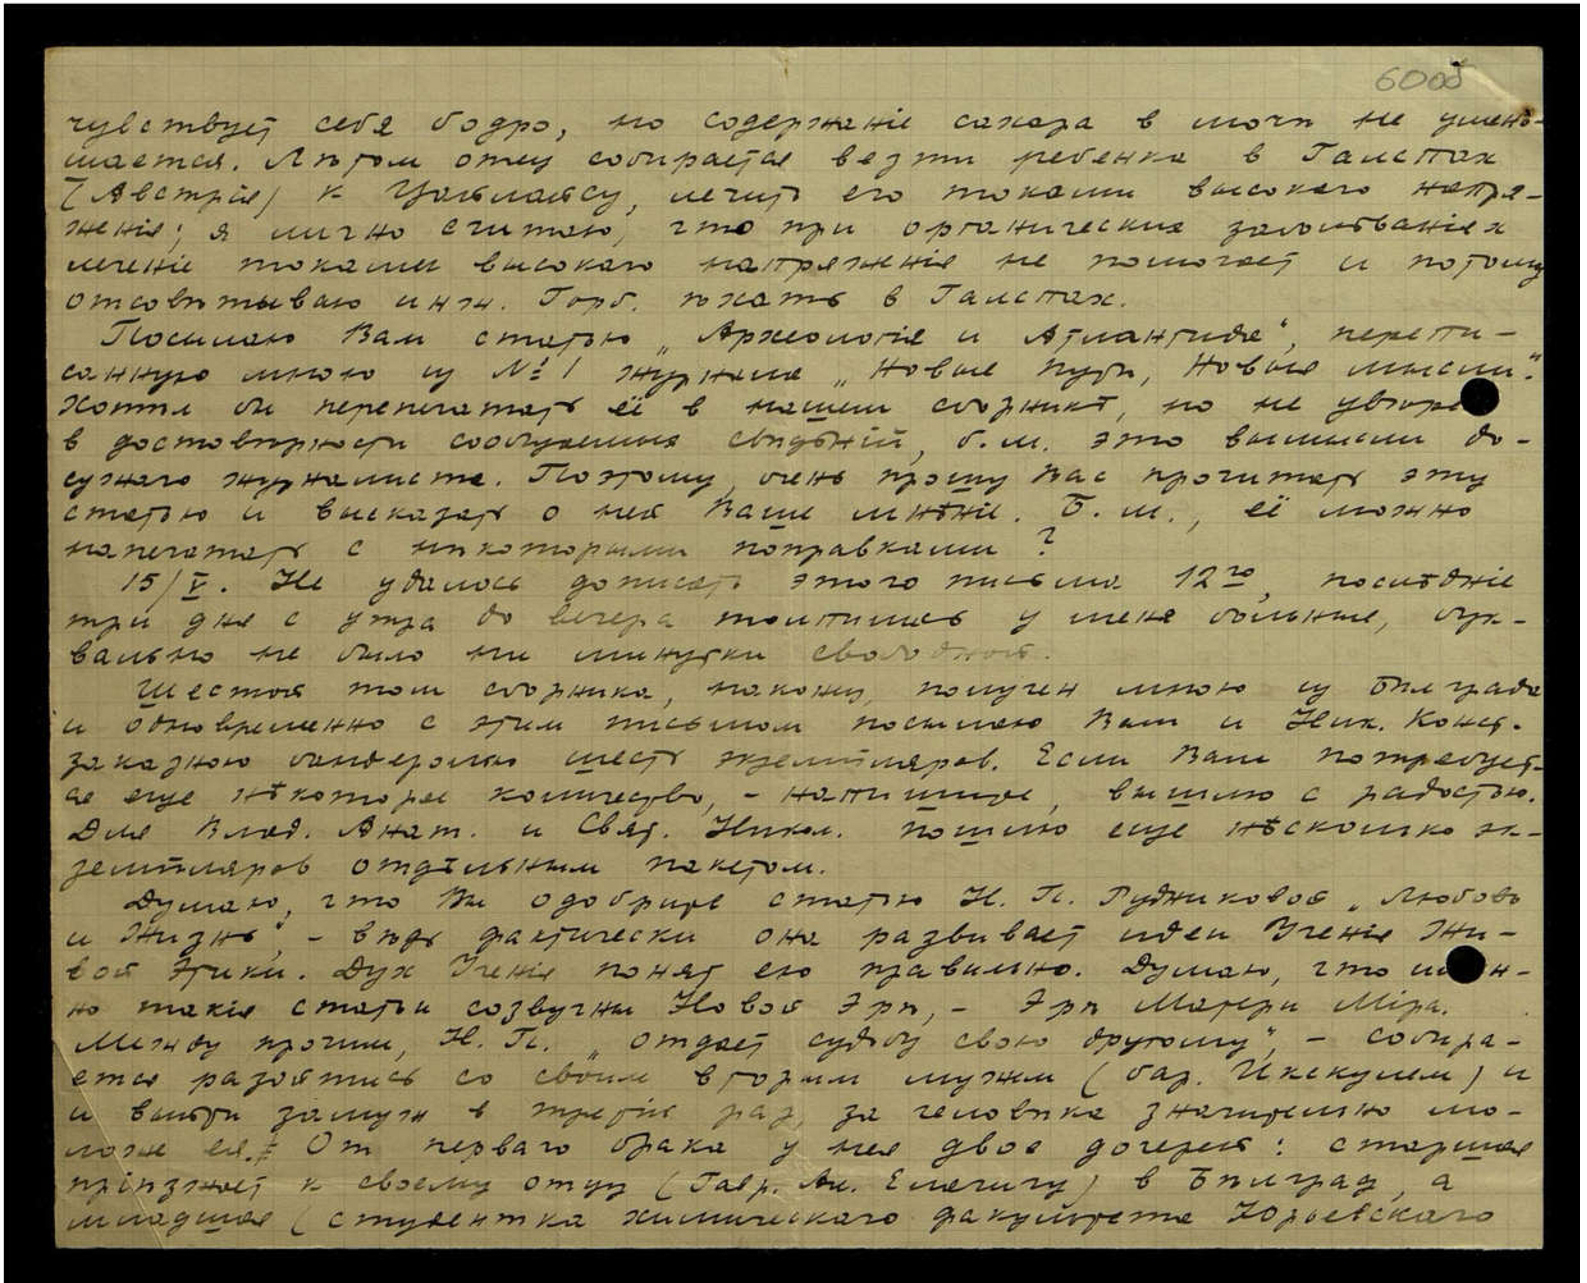 60об
чувствует себя бодро, но содержаніе сахара в мочѣ не умень-
шается. Лѣтом отец собирается везти ребенка в Галспах
(Австрія) к Цайлайсу, лечит его токами высокаго напря-
женія; я лично считаю, что при органических заболѣваніях
леченіе токами высокаго напряженія не помогает и потому
отсовѣтываю инж. Горб. ѣхать в Галспах.
Посылаю Вам статью „Археологія и Атлантида“, перепи-
санную мною из № 1 журнала „Новые Пути, Новыя мысли“.
Хотѣл бы перепечатать её в нашем сборникѣ, но не увѣрен
в достовѣрности сообщаемых свѣдѣній, б.м. это вымысел до-
сужаго журналиста. Поэтому очень прошу Вас прочитать эту
статью и высказать о ней Ваше мнѣніе. Б.м., её можно
напечатать с нѣкоторыми поправками?
15/V. Не удалось дописать этого письма 12го, послѣдніе
три дня с утра до вечера толпились у меня больные, бук-
вально не было ни минутки свободной.
Шестой том сборника, наконец, получен мною из Бѣлграда
и одновременно с этим письмом посылаю Вам и Ник. Конст.
заказною бандеролью шесть экземпляров. Если Вам потребует-
ся еще нѣкоторое количество, – напишите, вышлю с радостью.
Для Влад. Анат. и Свят. Никол. пошлю еще нѣсколько эк-
земпляров отдѣльным пакетом.
Думаю, что Вы одобрите статью Н. П. Рудниковой „Любовь
и Жизнь“, – вѣдь фактически она развивает идеи Ученія Жи-
вой Этики. Дух Ученія понят ею правильно. Думаю, что имен-
но такія статьи созвучны Новой Эрѣ, – Эрѣ Матери Міра.
Между прочим, Н. П. „отдает судьбу свою другому“, – собира-
ется разойтись со своим вторым мужем (бар. Икскулем) и
и выйти замуж в третій раз, за человѣка значительно мо-
ложе ея. От перваго брака у нея двое дочерей: старшая
пріѣзжает к своему отцу (Гавр. Ан. Елачичу) в Бѣлград, а
младшая (студентка химическаго факультета Юрьевскаго